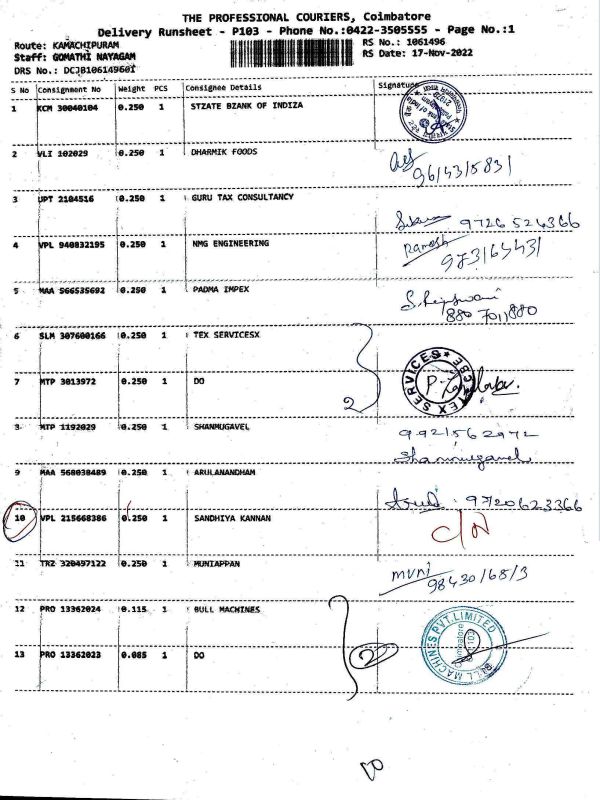 THE PROFESSIONAL COURIERS, Coimbatore
Delivery Runsheet - P103 - Phone No.:0422-3505555 - Page No.:1
Route: KAMACHIPURAM
RS No.: 1061496
Staff: GOMATHI NAYAGAM
RS Date: 17-Nov-2022
DRS No.: DCJB10614960I
S No Consignment No Weight PCS Consignee Details Signature
1 KCM 30040104 0.250 1 STZATE BZANK OF INDIZA
2 VLI 102029 0.250 1 DHARMIK FOODS
9614315831
3 UPT 2104516 0.250 1 GURU TAX CONSULTANCY
9726524366
4 VPL 940832195 0.250 1 NMG ENGINEERING Ramesh
5 MAA 566535692 0.250 1 PADMA IMPEX
880 7011880
6 SLM 307600166 0.250 1 TEX SERVICESX
7 MTP 3013972 0.250 1 DO
2
TEX SERVICES * CBE *
8 MTP 1192029 0.250 1 SHANMUGAVEL 9921562972
Shanmugavel
9 MAA 568038489 0.250 1 ARULANANDHAM
9720623366
10 VPL 215668386 0.250 1 SANDHIYA KANNAN
11 TRZ 320497122 0.250 1 MUNIAPPAN muni
9843016813
12 PRO 13362024 0.115 1 BULL MACHINES
13 PRO 13362023 0.085 1 DO
2
BULL MACHINES PVT.LIMITED